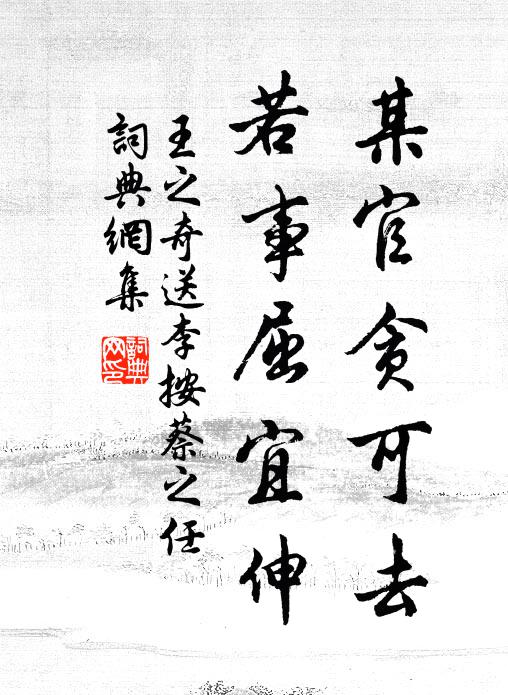 某官貪可去
若事屈宜伸
王之奇送李按蔡之任
詞典網集
詞典
网印